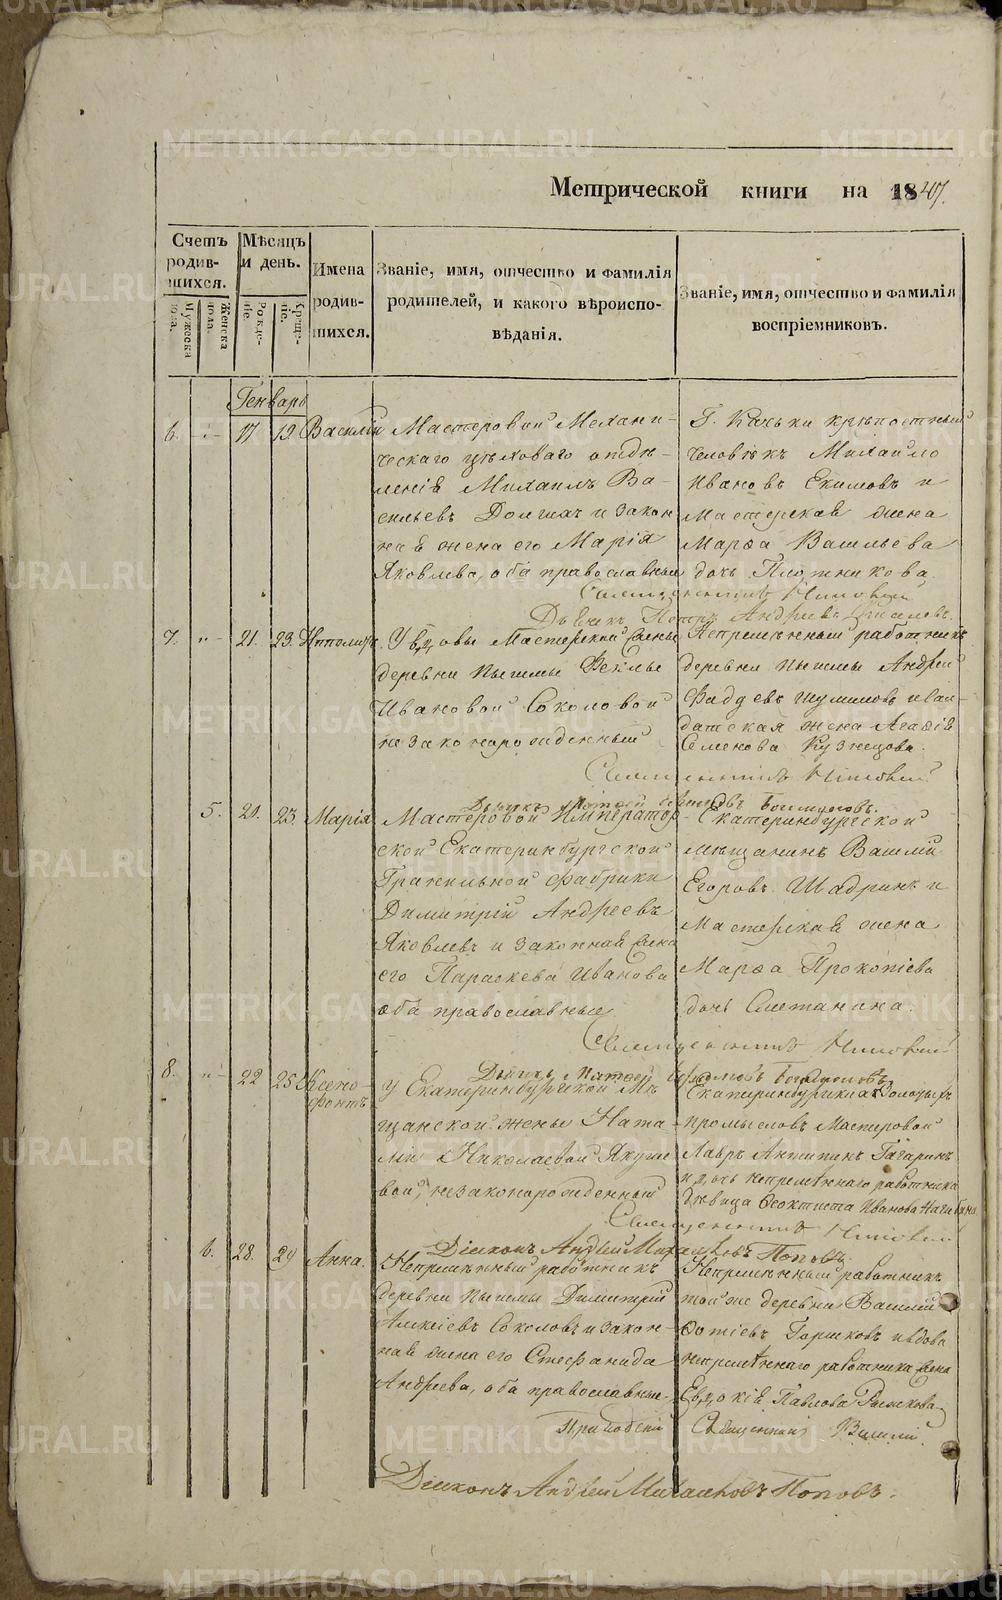 METRIKI.GASO-URAL.RU
Метрической книги на 1847.
Счетъ родив-шихся.
Мужеска пола.
Женска пола.
Мѣсяцъ и день.
Рожде-ніе.
Креще-ніе.
Имена родив-шихся.
Званіе, имя, отчество и фамилія
родителей, и какого вѣроиспо-
вѣданія.
Званіе, имя, отчество и фамилія
воспріемниковъ.
Генварь
6. 17 19 Василій
Мастеровой Механи-
ческаго цѣховаго отдѣ-
ленія Михаилъ Ва-
сильевъ Долгихъ и закон
ная жена его Марія
Яковлева, оба православные
Г. Качьки крѣпостный
человѣкъ Михайло
Ивановъ Екимовъ и
Мастерская жена
Марѳа Васильева
дочь Плотникова.
7. 21. 23. Ипполитъ.
У вдовы Мастерской жены
деревни Пышмы Ѳеклы
Ивановой Соколовой
незаконнорожденный
Непремѣнный работникъ
деревни Пышмы Андрей
Фадѣевъ Шумиловъ и Сал-
датская жена Агафія
Семенова Кузнецова.
5. 21. 23 Марія
Мастеровой Император-
ской Екатеринбургской
Гранильной Фабрики
Димитрій Андреевъ
Яковлевъ и законная жена
его Параскева Иванова
оба православные
Екатеринбургской
мѣщанинъ Василій
Егоровъ Шадринъ и
Мастерская жена
Марѳа Прокопіева
дочь Сметанина.
8. 22 25 Ксено-
фонтъ
у Екатеринбургской Мѣ
щанской жены Ната-
ліи Николаевой Якуше
вой, незаконнорожденный
Екатеринбургскихъ Золотыхъ
промысловъ Мастеровой
Лавръ Антипинъ Гагаринъ
и дочь непремѣннаго работника
дѣвица Ѳеоктиста Иванова Нагибина
Діаконъ Андрей Михайловъ Поповъ
6. 28. 29 Анна.
Непремѣнный работникъ
деревни Пышмы Димитрій
Алексіевъ Соколовъ и закон-
ная жена его Стефанида
Андреева, оба православные.
Непремѣнный работникъ
той же деревни Василій
Фотіевъ Горшковъ и вдова
непремѣннаго работника жена
Евдокія Павлова
Приходскій Священникъ Василій
Діаконъ Андрей Михайловъ Поповъ.